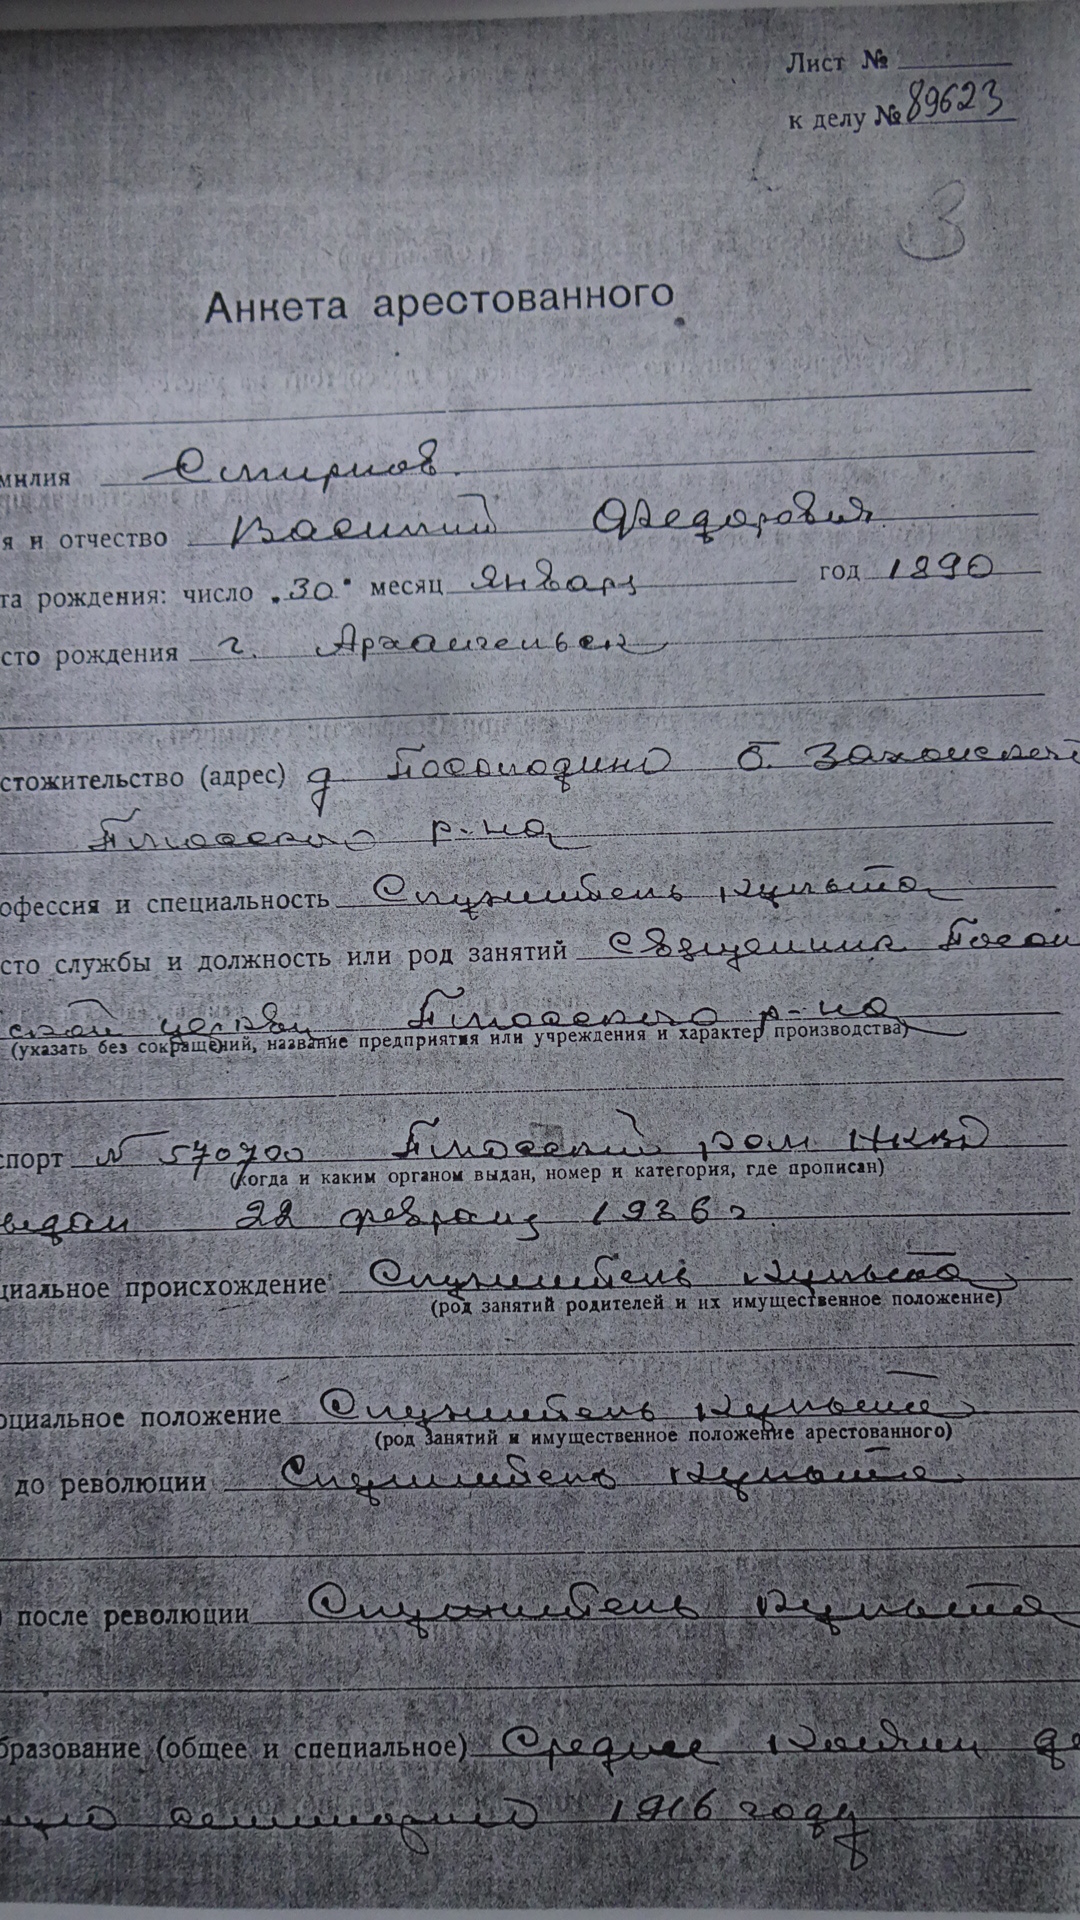 Лист №
к делу № 89623
3
Анкета арестованного
милия Смирнов
я и отчество Василий Федорович
та рождения: число „30" месяц Январь год 1890
сто рождения г. Архангельск
стожительство (адрес) д. б.
Плюсского р-на
офессия и специальность Служитель культа
сто службы и должность или род занятий священник
ской церкви Плюсского р-на
(указать без сокращений, название предприятия или учреждения и характер производства)
спорт № 570700 Плюсский НКВД
(когда и каким органом выдан, номер и категория, где прописан)
22 февраля 1936 г
циальное происхождение Служитель культа
(род занятий родителей и их имущественное положение)
оциальное положение Служитель культа
(род занятий и имущественное положение арестованного)
до революции Служитель культа
после революции Служитель культа
бразование (общее и специальное) Среднее
1916 году